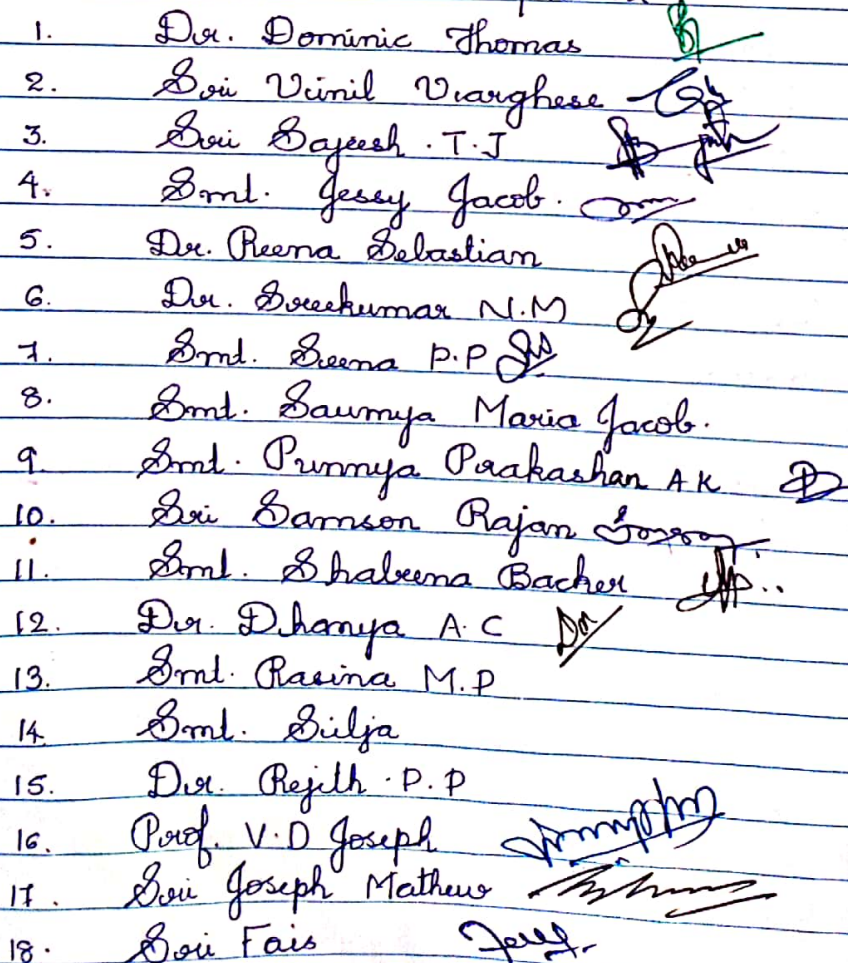 1. Dr. Dominic Thomas
2. Sri Vinil Varghese
3. Sri Sajeesh . T. J
4. Smt. Jessy Jacob.
5. Dr. Reena Sebastian
6. Dr. Sreekumar N.M
7. Smt. Seena P.P
8. Smt. Saumya Maria Jacob.
9. Smt. Punnya Prakashan A K
10. Sri Samson Rajan
11. Smt. Shabeena Backer
12. Dr. Dhanya A. C
13. Smt. Rasina M.P
14 Smt. Silja
15. Dr. Rejith . P. P
16. Prof. V. D Joseph
17. Sri Joseph Mathew
18. Sri Fais